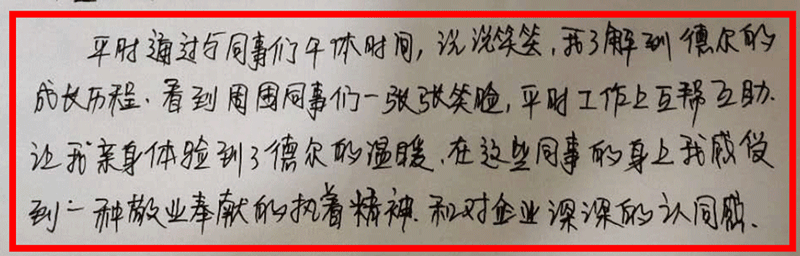 平时通过与同事们午休时间，说说笑笑，我了解到德尔的
成长历程.看到周围同事们一张张笑脸，平时工作上互帮互助.
让我亲身体验到了德尔的温暖.在这些同事的身上我感受
到一种敬业奉献的执着精神.和对企业深深的认同感.